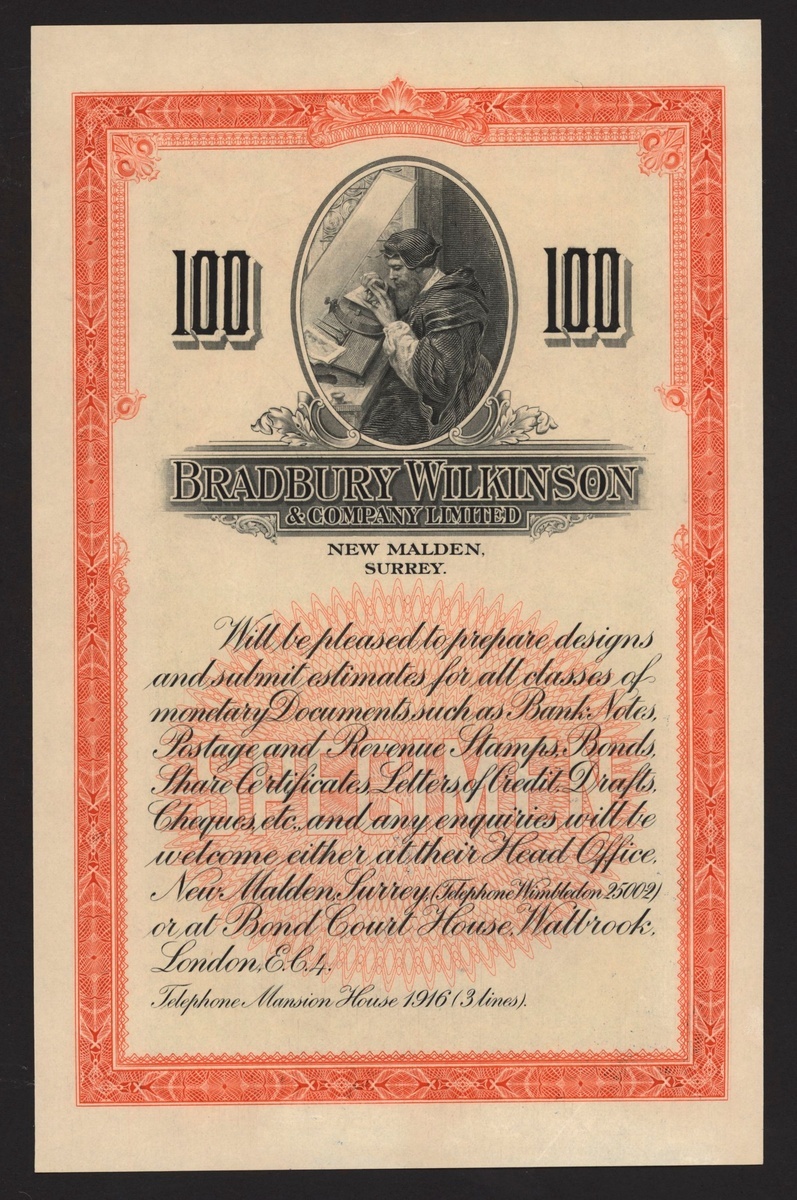 100 100
BRADBURY WILKINSON
& COMPANY LIMITED
NEW MALDEN,
SURREY.
Will be pleased to prepare designs
and submit estimates for all classes of
monetary Documents such as Bank Notes,
Postage and Revenue Stamps, Bonds,
Share Certificates, Letters of Credit, Drafts,
Cheques, etc., and any enquiries will be
welcome either at their Head Office,
New Malden, Surrey, (Telephone Wimbledon 25002)
or at Bond Court House, Walbrook,
London, E.C.4.
Telephone Mansion House 1916 (3 lines).
SPECIMEN